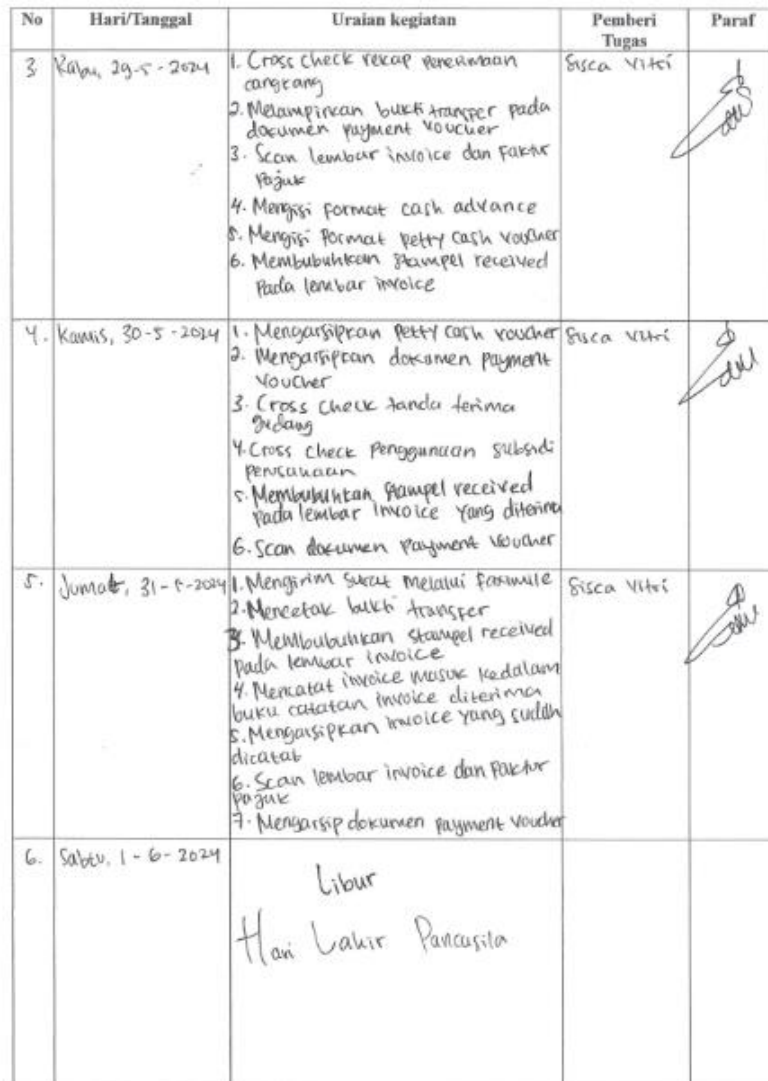 No Hari/Tanggal Uraian kegiatan Pemberi Tugas Paraf
3. Rabu, 29-5-2024 Sisca Vitri
1. Cross check rekap penerimaan
cangkang
2. Melampirkan bukti transfer pada
dokumen payment voucher
3. Scan lembar invoice dan Faktur
Pajak
4. Mengisi format cash advance
5. Mengisi format petty cash voucher
6. Membubuhkan stampel received
pada lembar invoice
4. Kamis, 30-5-2024 Sisca Vitri
1. Mengarsipkan Petty cash voucher
2. Mengarsipkan dokumen payment
voucher
3. Cross check tanda terima
gudang
4. Cross check Penggunaan subsidi
perusahaan
5. Membubuhkan stampel received
pada lembar invoice yang diterima
6. Scan dokumen payment voucher
5. Jumat, 31-5-2024 Sisca Vitri
1. Mengirim surat melalui faximile
2. Mencetak bukti transfer
3. Membubuhkan stampel received
pada lembar invoice
4. Mencatat invoice masuk kedalam
buku catatan invoice diterima
5. Mengarsipkan invoice yang sudah
dicatat
6. Scan lembar invoice dan Faktur
pajak
7. Mengarsip dokumen payment voucher
6. Sabtu, 1-6-2024
Libur
Hari Lahir Pancasila